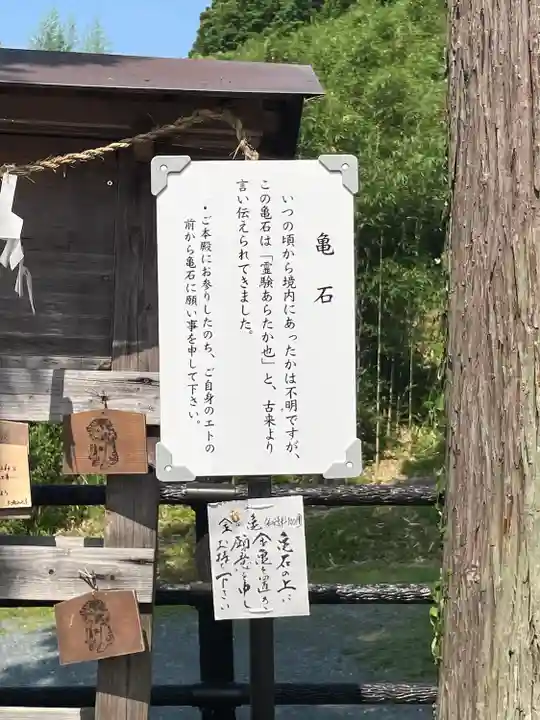 亀石
いつの頃から境内にあったかは不明ですが、
この亀石は「霊験あらたか也」と、古来より
言い伝えられてきました。
・ご本殿にお参りしたのち、ご自身のエトの
前から亀石に願い事を申して下さい。
亀石の上に
金亀を置き
願い事を申し
お持ち下さい